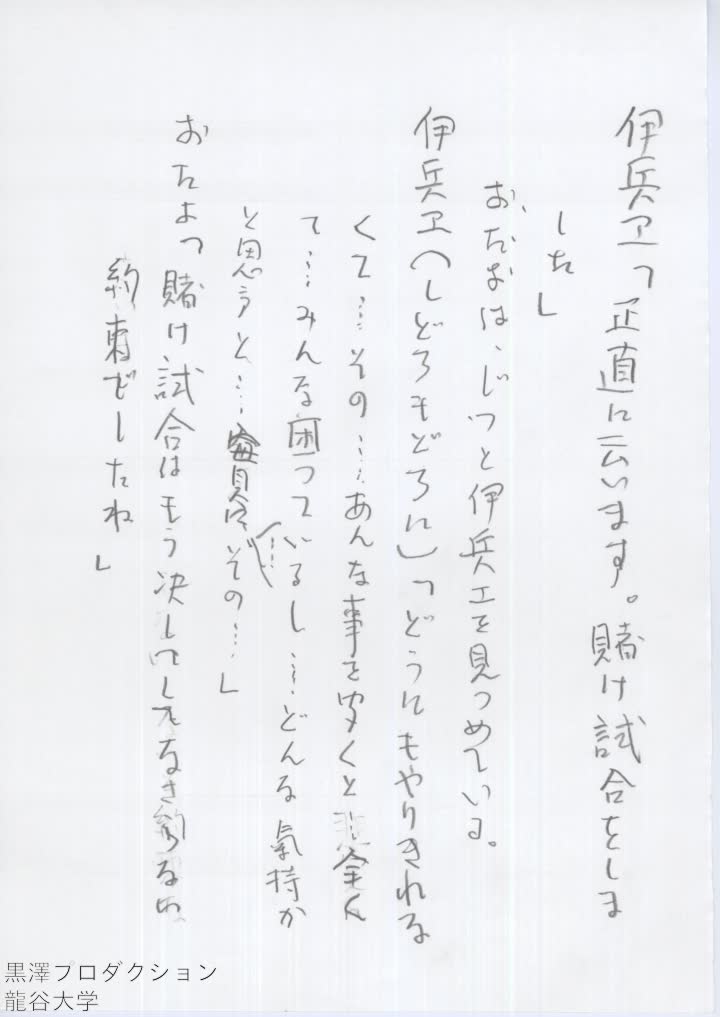 伊兵ヱ「正直に云います。賭け試合をしま
した」
おたよは、じっと伊兵エを見つめている。
伊兵ヱ(しどろもどろに)「どうにもやりきれな
くて…その…あんな事を聞くと…全く
て…みんな困っているし…どんな氣持か
と思うと…その…」
おたよ「賭け試合はもう決してしなさらない
約束でしたね」
黒澤プロダクション
龍谷大学